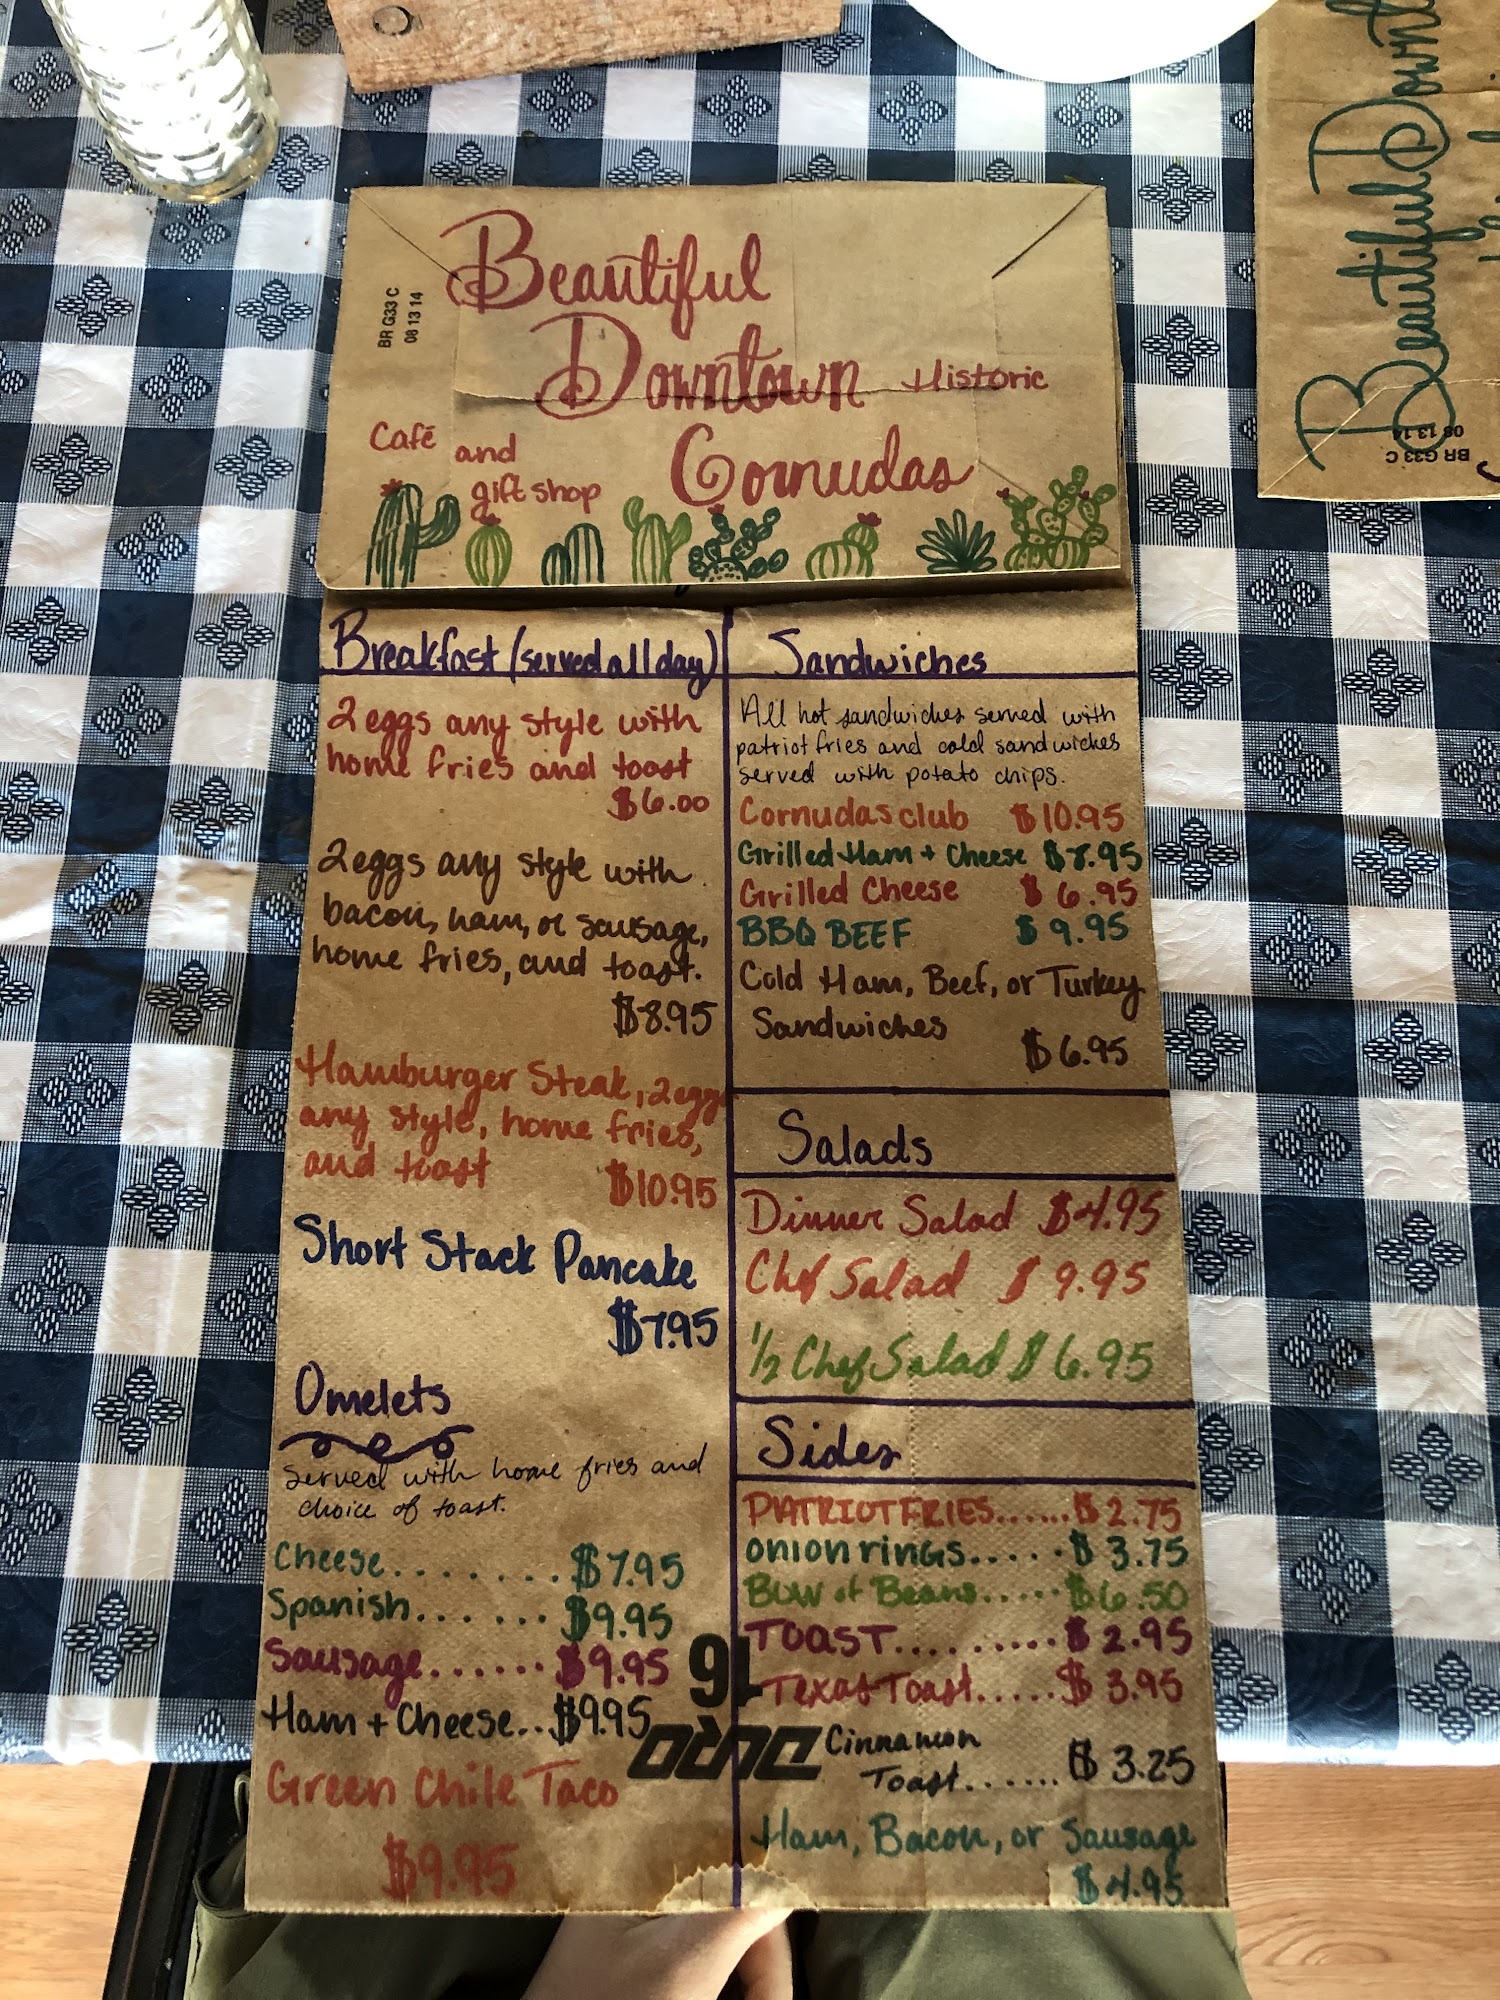 BR G33 C
08 13 14
Beautiful
Downtown Historic
Cornudas
Café and
gift shop
Breakfast (served all day)
2 eggs any style with
home fries and toast
$6.00
2 eggs any style with
bacon, ham, or sausage,
home fries, and toast.
$8.95
Hamburger Steak, 2 eggs
any style, home fries,
and toast $10.95
Short Stack Pancake
$7.95
Omelets
served with home fries and
choice of toast.
Cheese....... $7.95
Spanish...... $9.95
Sausage...... $9.95
Ham + Cheese.. $9.95
Green Chile Taco
$9.95
Sandwiches
All hot sandwiches served with
patriot fries and cold sandwiches
served with potato chips.
Cornudas club $10.95
Grilled Ham + Cheese $8.95
Grilled Cheese $6.95
BBQ BEEF $9.95
Cold Ham, Beef, or Turkey
Sandwiches
$6.95
Salads
Dinner Salad $4.95
Chef Salad $9.95
1/2 Chef Salad $6.95
Sides
PATRIOT FRIES...... $2.75
onion rings..... $3.75
Bowl of Beans..... $6.50
TOAST......... $2.95
Texas Toast..... $3.95
Cinnamon
Toast...... $3.25
Ham, Bacon, or Sausage
$4.95
16
DURO
Beautiful
Downt
BR G33 C
08 13 14